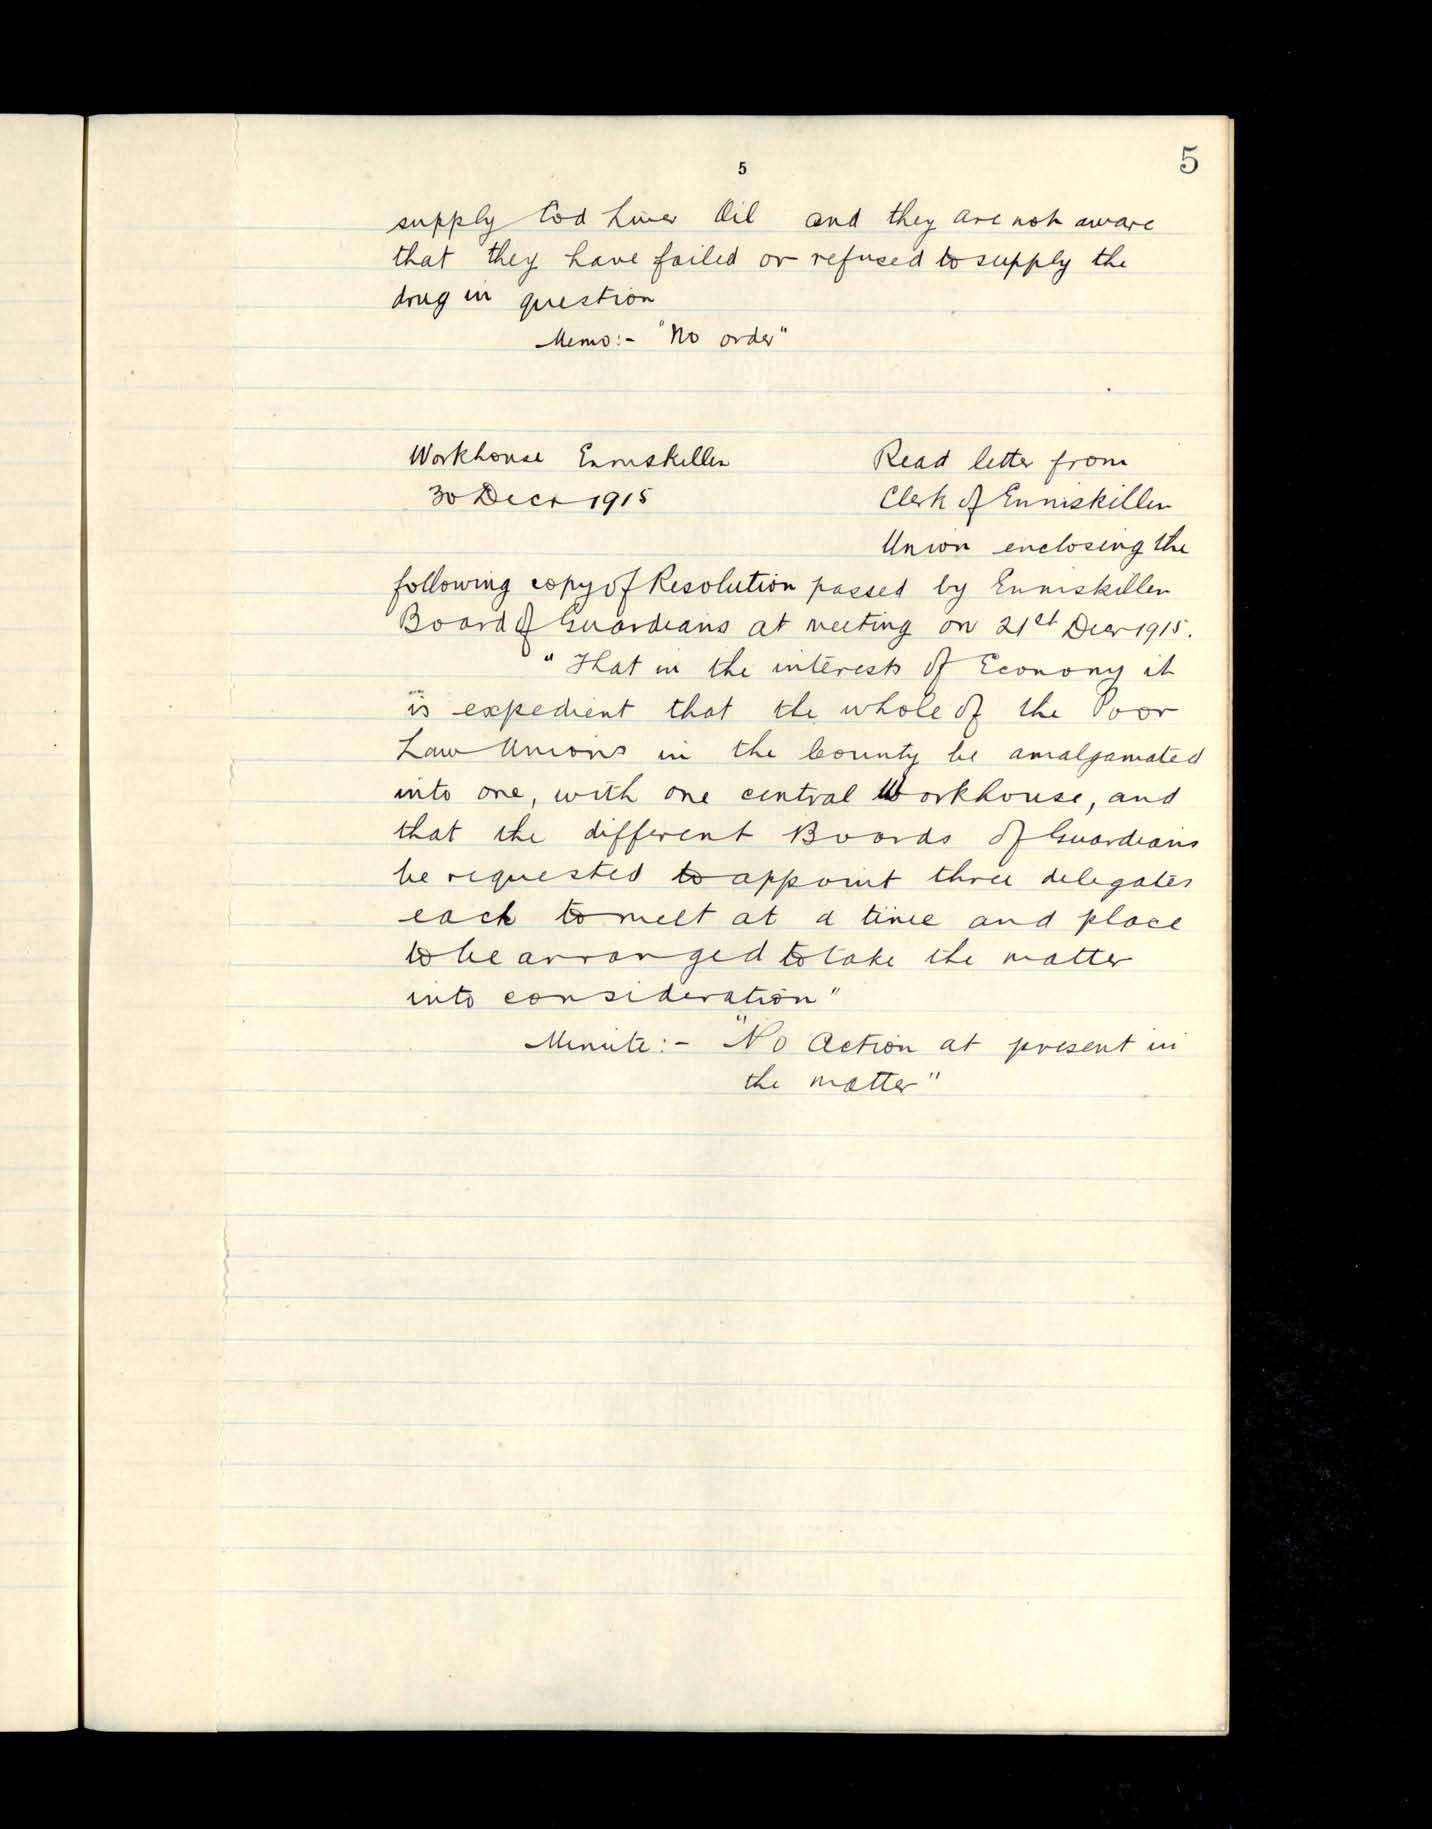 5
5
supply Cod Liver Oil and they are not aware
that they have failed or refused to supply the
drug in question
Memo:- "No order"
Workhouse Enniskillen
30 Decr 1915
Read letter from
Clerk of Enniskillen
Union enclosing the
following copy of Resolution passed by Enniskillen
Board of Guardians at meeting on 21st Decr 1915.
"That in the interests of Economy it
is expedient that the whole of the Poor
Law Unions in the County be amalgamated
into one, with one central Workhouse, and
that the different Boards of Guardians
be requested to appoint three delegates
each to meet at a time and place
to be arranged to take the matter
into consideration"
Minute:- "No Action at present in
the matter"